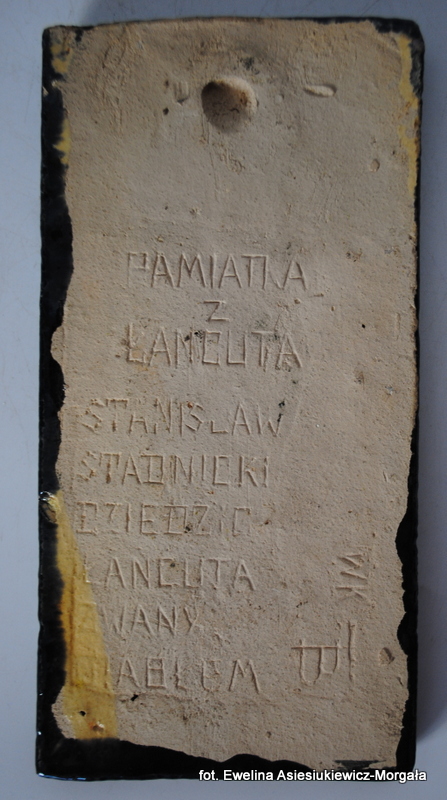 PAMIATKA
Z
ŁANCUTA
STANISŁAW
STADNICKI
DZIEDZIC
ŁANCUTA
ZWANY
DIABŁEM
WK
fot. Ewelina Asiesiukiewicz-Morgała